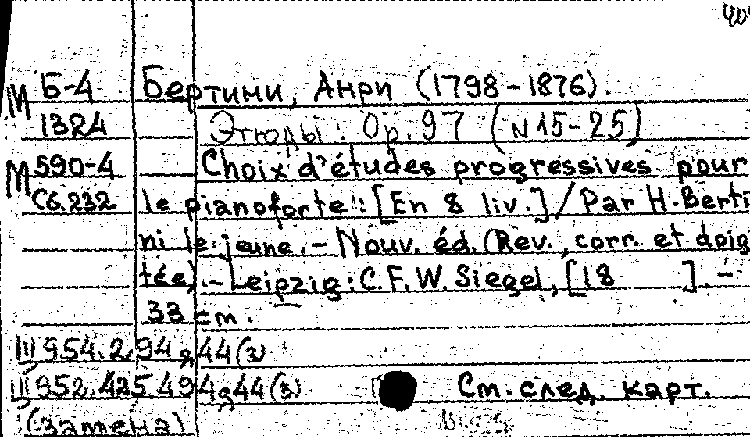 М Б-4 Бертини, Анри (1798-1876).
1324 Этюды. Ор. 97 (N 15-25)
М 590-4 Choix d'études progressives pour
Сб.232 le pianoforte: [En 8 liv.] / Par H. Berti
ni le jeune. - Nouv. éd. (Rev., corr. et doig
tée). - Leipzig: C.F.W. Siegel, [18 ]. -
33 cm.
Ш 954.2.94 д 44 (з)
Ш 952.425.494 д 44 (з) См. след. карт.
(замена)